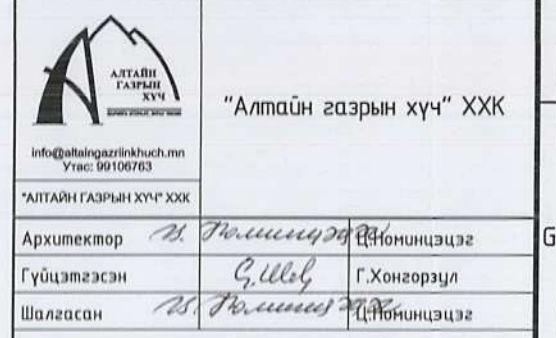 АЛТАЙН
ГАЗРЫН
ХҮЧ
info@altaingazriinkhuch.mn
Утас: 99106763
"АЛТАЙН ГАЗРЫН ХҮЧ" ХХК
"Алтайн газрын хүч" ХХК
Архитектор Ц.Номинцэцэг
Гүйцэтгэсэн Г.Хонгорзул
Шалгасан Ц.Номинцэцэг
G